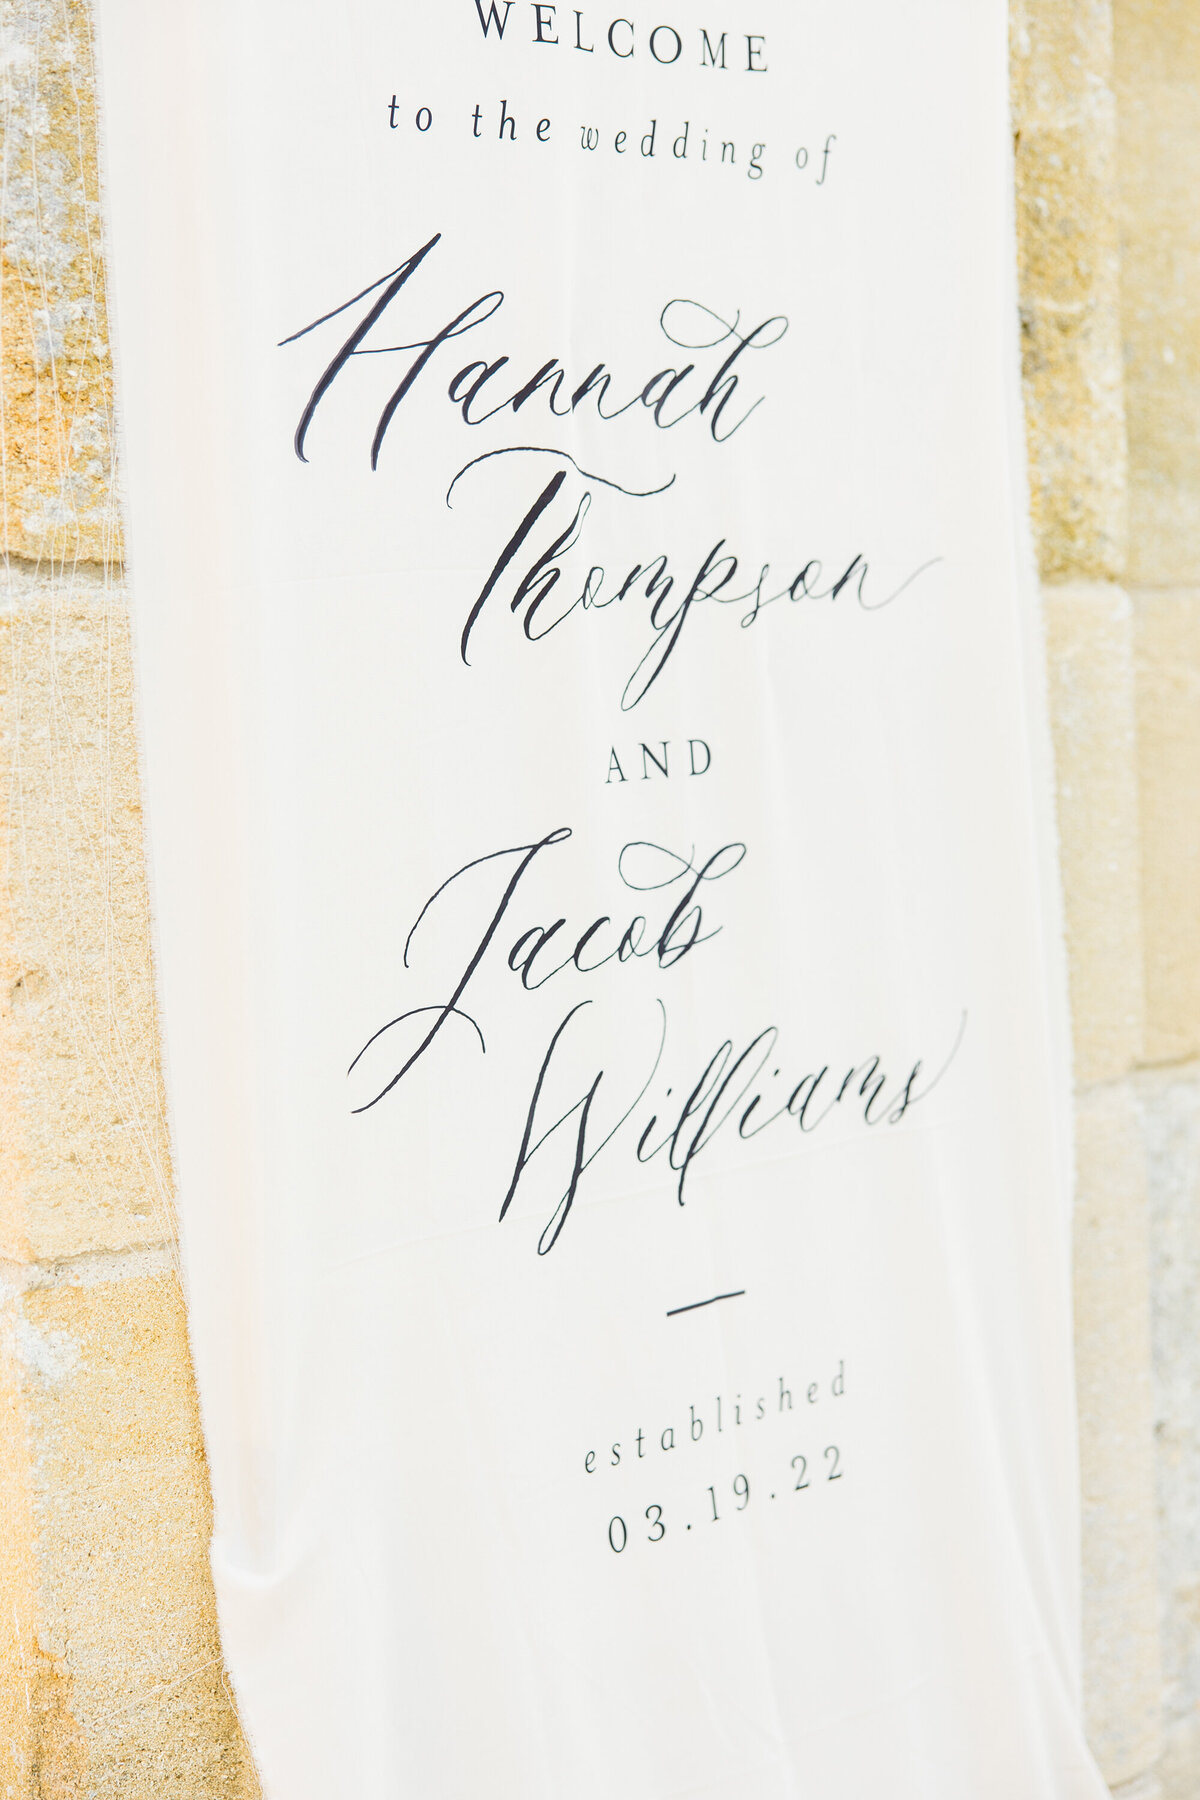 WELCOME
to the wedding of
Hannah
Thompson
AND
Jacob
Williams
established
03.19.22